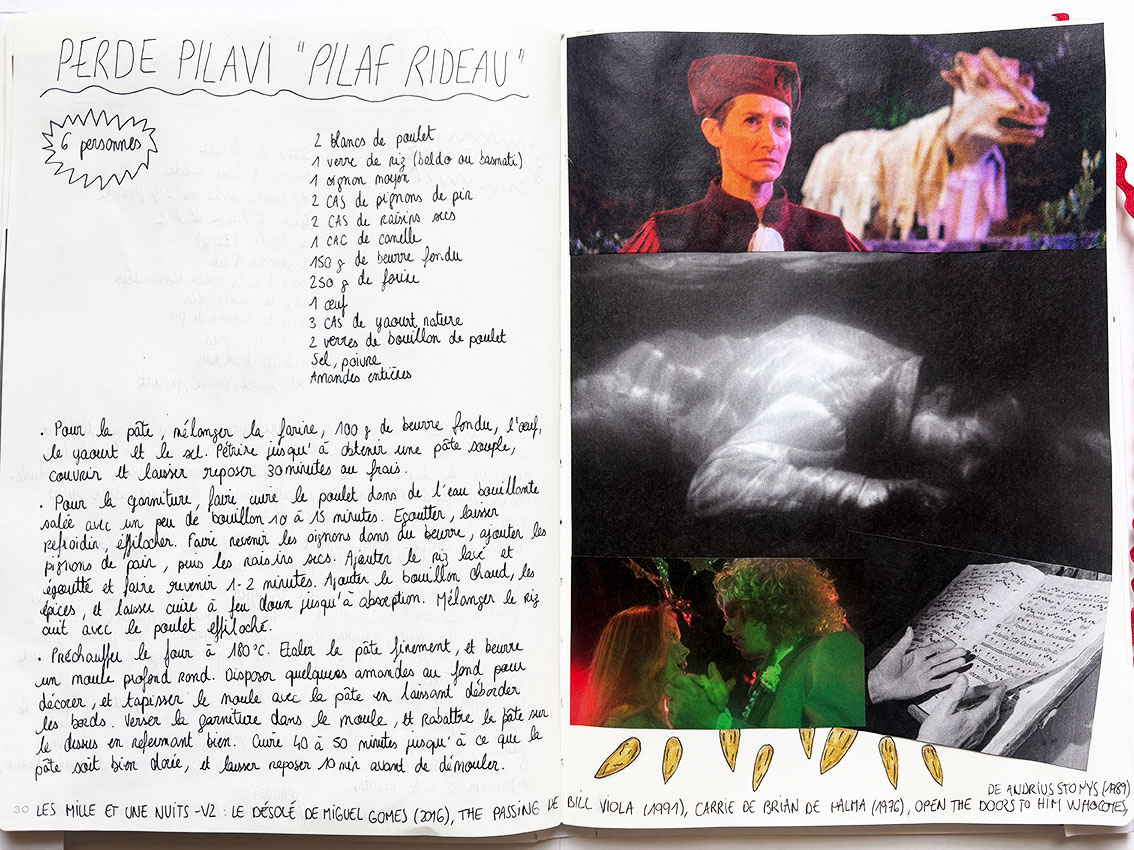 PERDE PILAVI "PILAF RIDEAU"
6 personnes
2 blancs de poulet
1 verre de riz (baldo ou basmati)
1 oignon moyen
2 CAS de pignons de pin
2 CAS de raisins secs
1 CAC de canelle
150 g de beurre fondu
250 g de farine
1 œuf
3 CAS de yaourt nature
2 verres de bouillon de poulet
Sel, poivre
Amandes entières
. Pour la pâte, mélanger la farine, 100 g de beurre fondu, l'œuf,
le yaourt et le sel. Pétrire jusqu'à obtenir une pâte souple,
couvrir et laisser reposer 30 minutes au frais.
. Pour la garniture, faire cuire le poulet dans de l'eau bouillante
salée avec un peu de bouillon 10 à 15 minutes. Egoutter, laisser
refroidir, effilocher. Faire revenir les oignons dans du beurre, ajouter les
pignons de pain, puis les raisins secs. Ajouter le riz lavé et
égoutté et faire revenir 1-2 minutes. Ajouter le bouillon chaud, les
épices, et laisser cuire à feu doux jusqu'à absorption. Mélanger le riz
cuit avec le poulet effiloché.
. Préchauffer le four à 180°C. Etaler la pâte finement, et beurre
un moule profond rond. Disposer quelques amandes au fond pour
décorer, et tapisser le moule avec la pâte en laissant déborder
les bords. Verser la garniture dans le moule, et rabattre la pâte sur
le dessus en refermant bien. Cuire 40 à 50 minutes jusqu'à ce que la
pâte soit bien dorée, et laisser reposer 10 min avant de démouler.
30 LES MILLE ET UNE NUITS -V2 : LE DÉSOLÉ DE MIGUEL GOMES (2016), THE PASSING DE BILL VIOLA (1991), CARRIE DE BRIAN DE PALMA (1976), OPEN THE DOORS TO HIM WHO COMES
DE ANDRIUS STONYS (1989)